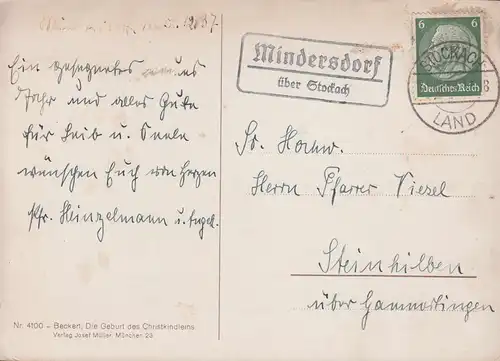 1937.
Ein gesegnetes neues
Jahr und alles Gute
für Leib u. Seele
wünschen Euch von Herzen
Pfr. Heinzelmann u. Angeh.
Nr. 4100 – Beckert, Die Geburt des Christkindleins
Verlag Josef Müller, München 23
Mindersdorf
über Stockach
6 6
Deutsches Reich
STOCKACH
LAND
Sr. Hochw.
Herrn Pfarrer Viesel
Steinhilben
über Gammertingen